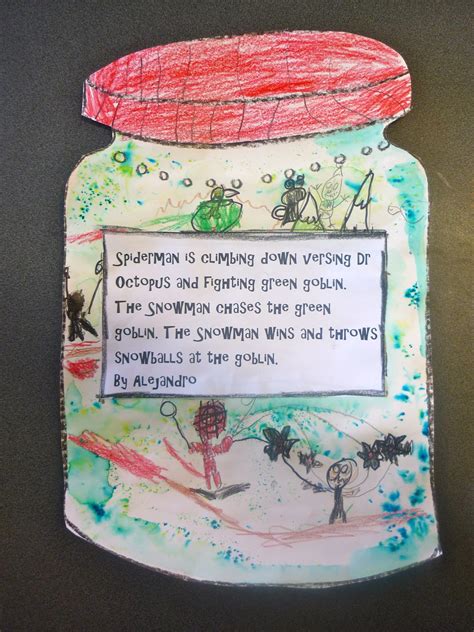 Spiderman is climbing down versing Dr
Octopus and fighting green goblin.
The snowman chases the green
goblin. The snowman wins and throws
snowballs at the goblin.
By Alejandro